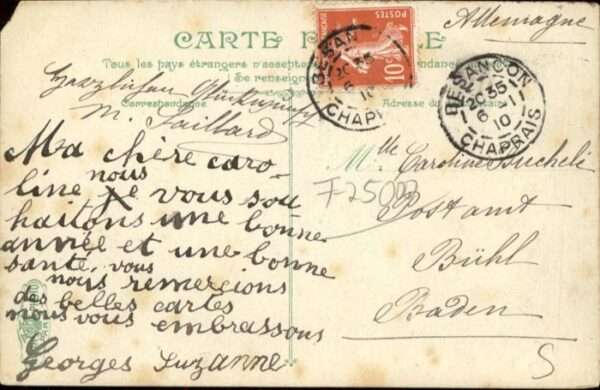 Allemagne
CARTE P LE
Tous les pays étrangers n'accepte
Se renseigne
Correspondance
Adresse du
10c
POSTES
BESANÇON
CHAPRAIS
BESANÇON
2 35
6 -11
10
CHAPRAIS
Herzlichen Glückwunsch
M. Saillard
Ma chère caro-
line nous je vous sou
haitons une bonne
année et une bonne
santé, vous
nous remercions
des belles cartes
nous vous embrassons
Georges Suzanne
Mlle Caroline Bucheli
F25000
Postamt
Bühl
Baden
S